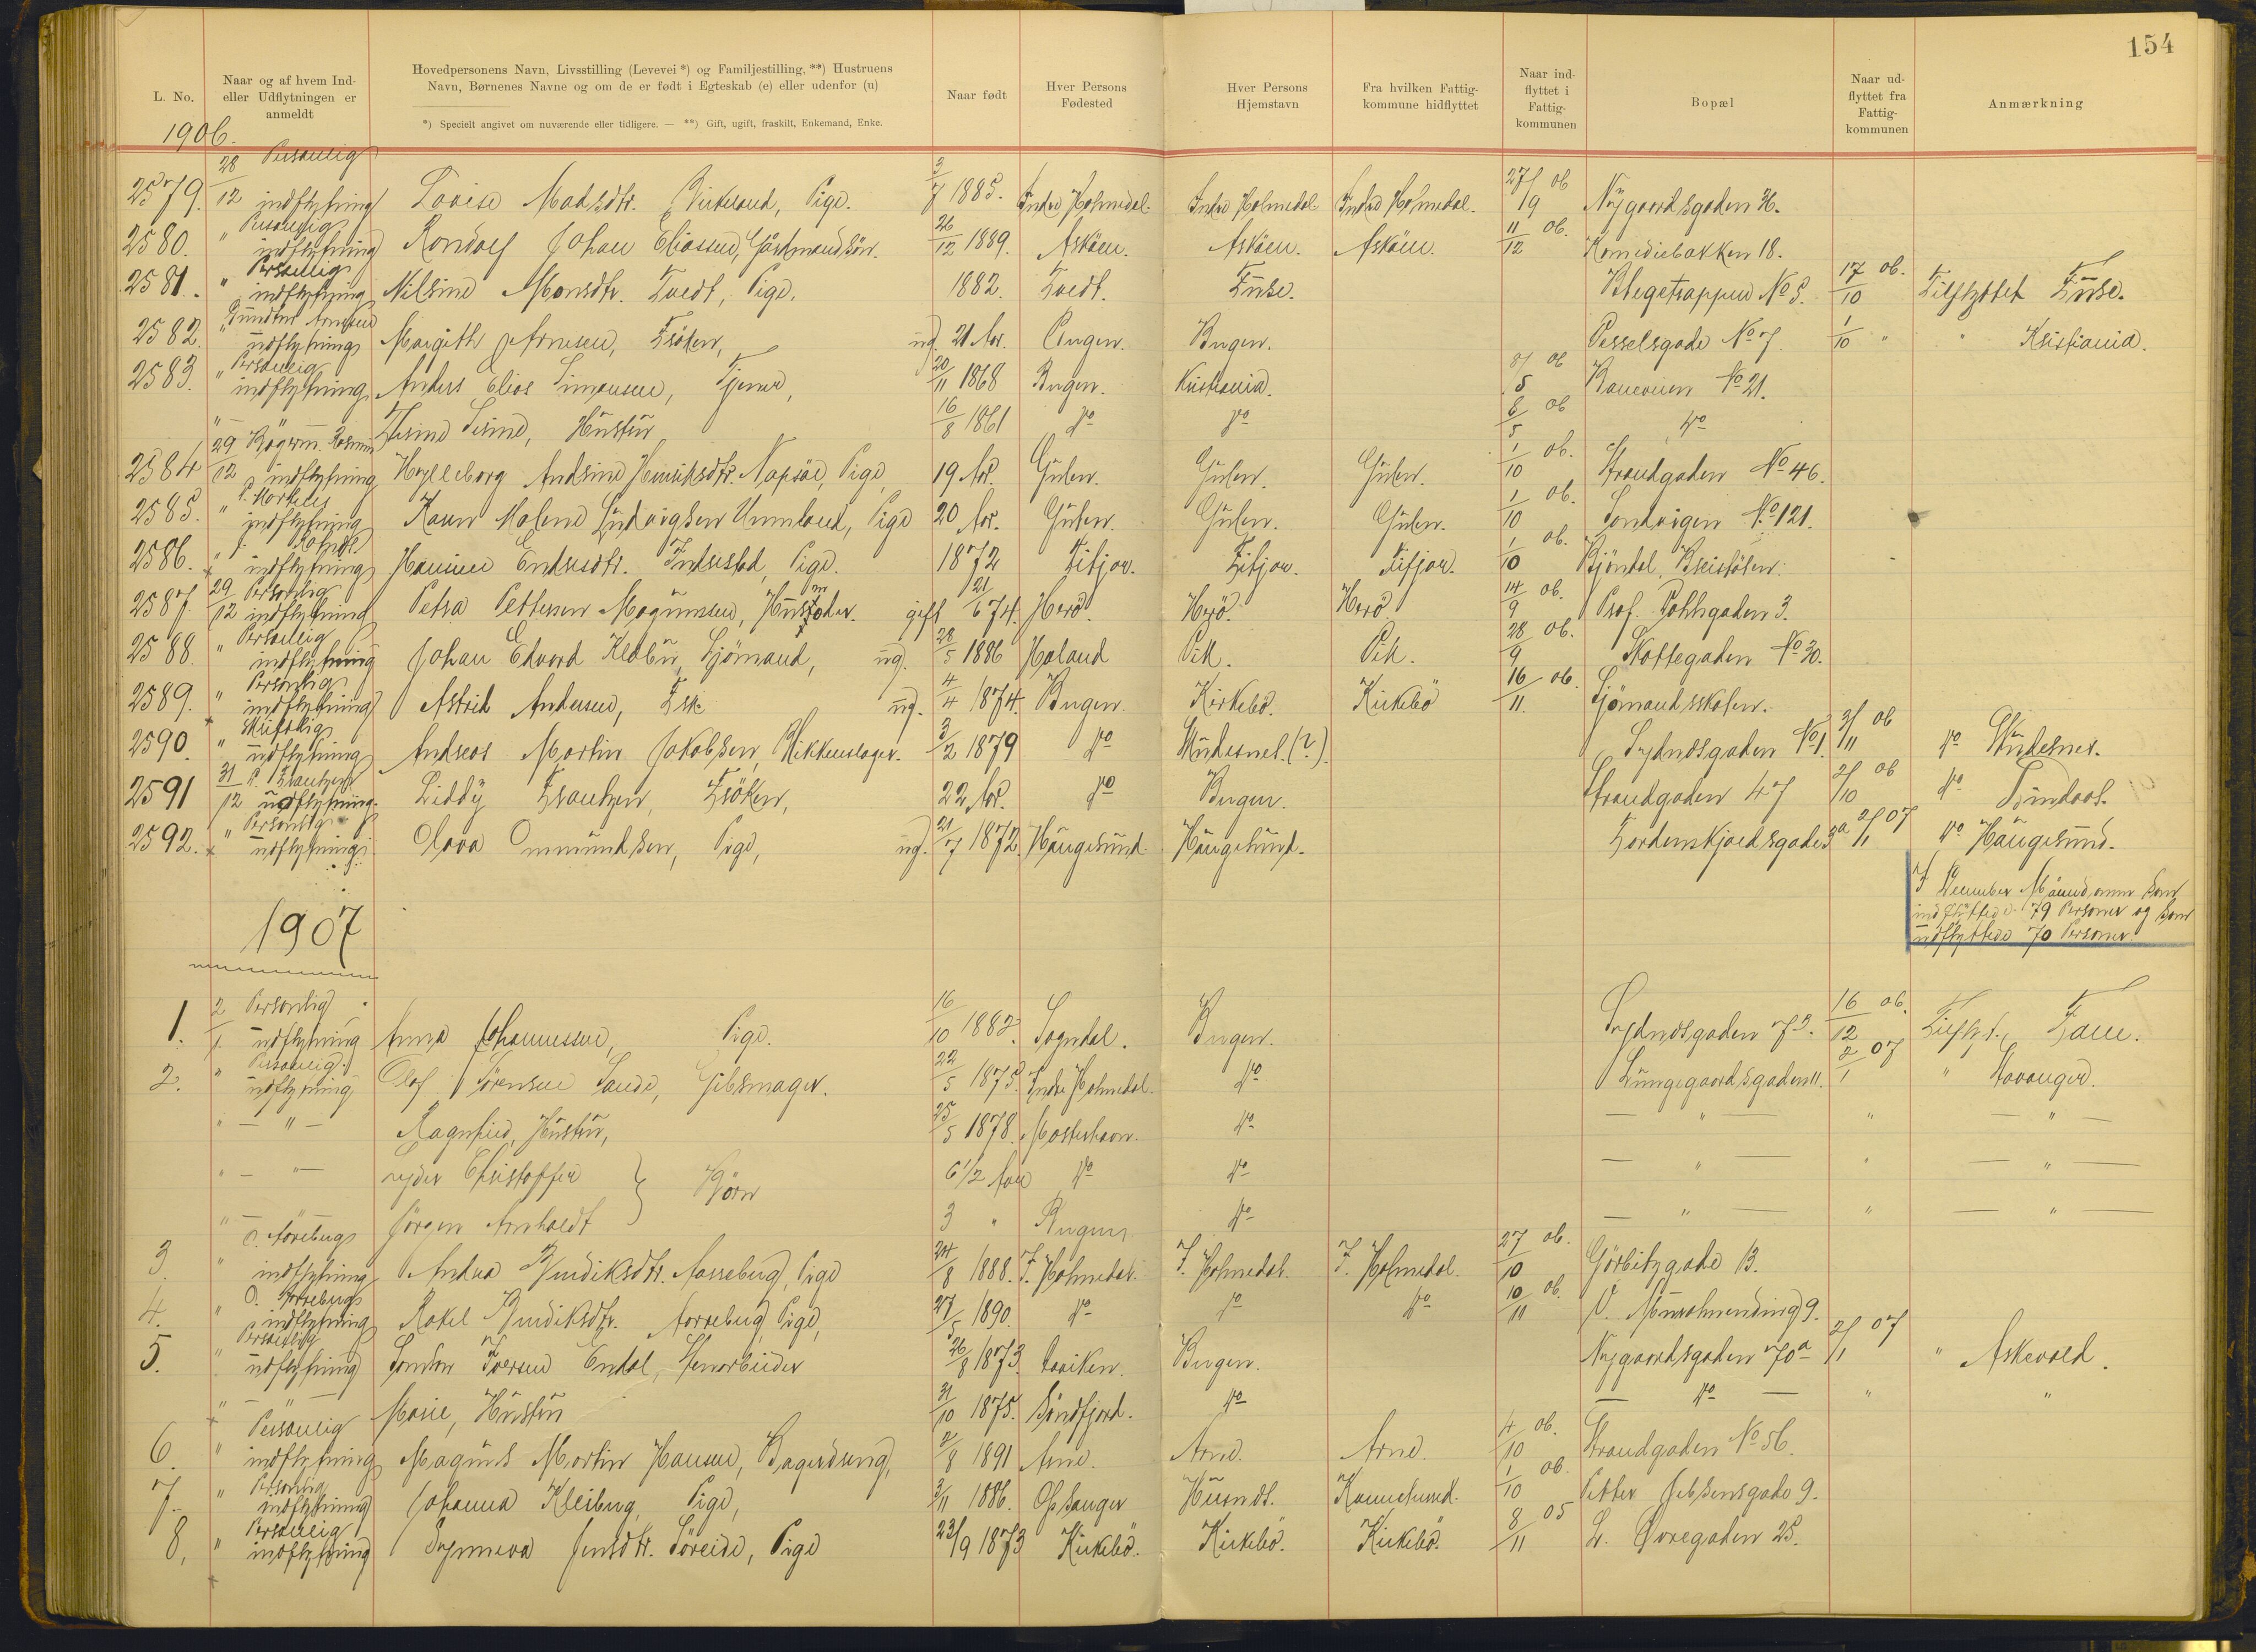 154
L. No.
Naar og af hvem Ind- eller Udflytningen er anmeldt
Hovedpersonens Navn, Livsstilling (Levevei*) og Familjestilling,**) Hustruens Navn, Børnenes Navne og om de er født i Egteskab (e) eller udenfor (u)
*) Specielt angivet om nuværende eller tidligere. — **) Gift, ugift, fraskilt, Enkemand, Enke.
Naar født
Hver Persons Fødested
Hver Persons Hjemstavn
Fra hvilken Fattig- kommune hidflyttet
Naar ind- flyttet i Fattig- kommunen
Bopæl
Naar ud- flyttet fra Fattig- kommunen
Anmærkning
1906.
2579. 28/12 Personlig indflytning Lovise Madsdtr. Birkeland, Pige. 3/7 1885. Indre Holmedal. Indre Holmedal Indre Holmedal. 27/9 06 Nygaardsgaden 36.
2580. " Personlig indflytning Johan Eliassen, 26/12 1889. Asköen. Asköen. Asköen. 11/12 06. Komediebakken 18.
2581. " Personlig indflytning Nilsine Monsdtr. Tvedt, Pige. 1882. Tvedt. Fuse. No 5. 17/10 06. Tilflyttet Fuse.
2582. " udflytning Margith Arnesen, Frøken, ug. 21 Aar. Bergen. Bergen. Wesselsgade No 7. 1/10 " " Kristiania.
2583. " Personlig indflytning Anders Elias Simonsen, Tjener, 20/11 1868 Bergen. Kristiania. 8/5 06 Baneveien No 21.
" — Hustru 16/8 1861 do do 8/5 06 do
2584 29/12 indflytning Andsine Henriksdtr. Pige, 19 Aar. Gulen. Gulen. Gulen. 1/10 06. Strandgaden No 46.
2585. " indflytning Karen Malene Ludvigsen Unneland, Pige 20 Aar. Gulen. Gulen. Gulen. 1/10 06. Sandvigen No 121.
2586. " indflytning Endresdtr. Pige. 1872 Fitjar. Fitjar. Fitjar. 1/10 06. Bjöndal, Breistölen.
2587. 29/12 Personlig indflytning Petra Pettersen Magnussen, gift 21/6 74. Herö. Herö. Herö 14/9 06. 3.
2588 " Personlig indflytning Johan Edvard Sjömand, ug. 28/5 1886 Høland Vik. Vik. 28/9 06. Skottegaden No 30.
2589. " Personlig indflytning Astrid Andersen, Frk. ug. 4/4 1874. Bergen. Kirkebö. Kirkebö 16/11 06. Sjömandsskolen.
2590. " Skriftlig udflytning Andreas Martin Jakobsen, Blikkenslager. 3/2 1879 do Skudesnes. (?) Sydnesgaden No 1. 3/11 06 do Skudesnes.
2591 31/12 udflytning. Liddy Frantzen, Frøken, 22 Aar. do Bergen. Strandgaden 47 2/10 06 do
2592. " Personlig udflytning Olava Ommundsen, Pige, ug. 21/7 1872. Haugesund Haugesund. Tordenskjoldsgade 3a 2/1 07 do Haugesund.
I December Maaned anm. som indflyttede 79 Personer og som udflyttede 70 Personer.
1907
1. 2/1 Personlig udflytning Anna Johannessen, Pige. 16/10 1882. Sogndal. Bergen. Sydnesgaden 73. 16/12 06. Tilflyt. Fane.
2. " Personlig udflytning Olaf Sörensen Sande, Gibsmager. 22/5 1875. Indre Holmedal. do Lungegaardsgaden 11. 2/1 07 " Stavanger.
" — " — Ragnhild, Hustru, 25/5 1878. Mosterhavn. do — " — " — " —
" — " — Christoffer } Börn 6 1/2 Aar do do — " — " — " —
" — Jörgen Arnholdt 3 " Bergen do — " — " — " —
3. " indflytning Andrea Bendiksdtr. Aareberg, Pige 24/8 1888. I. Holmedal. I. Holmedal. I. Holmedal. 27/10 06. Görbitzgade 13.
4. " indflytning Rakel Bendiksdtr. Aareberg, Pige, 27/5 1890. do do do 10/11 06. 9.
5. " Personlig udflytning Iversen Endal, Stenarbeider 26/8 1873. Bergen. Nygaardsgaden 70a 2/1 07 " Askevold.
" — Marie, Hustru 31/10 1875. Söndfjord. do — do — " "
6. " Personlig indflytning Magnus Martin Hansen, Bagerdreng, 2/8 1891 Arne. Arne. Arne. 4/10 06. Strandgaden No 56.
7. " Personlig indflytning Johanna Kleiberg, Pige, 3/11 1886. Opsanger Husnes. 1/10 06. Petter Jebsensgade 9.
8. " Personlig indflytning Synneva Jensdtr. Söreide, Pige 23/9 1873 Kirkebö. Kirkebö. Kirkebö. 8/11 05 L. Øvregaden 25.